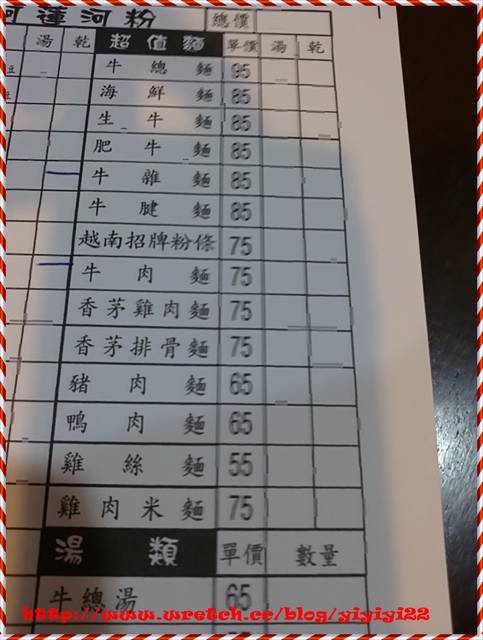 阿蓮河粉 總價
湯 乾 超值麵 單價 湯 乾
牛總麵 95
海鮮麵 85
生牛麵 85
肥牛麵 85
牛雜麵 85
牛腱麵 85
越南招牌粉條 75
牛肉麵 75
香茅雞肉麵 75
香茅排骨麵 75
豬肉麵 65
鴨肉麵 65
雞絲麵 55
雞肉米麵 75
湯類 單價 數量
牛總湯 65
http://www.wretch.cc/blog/yiyiyi22